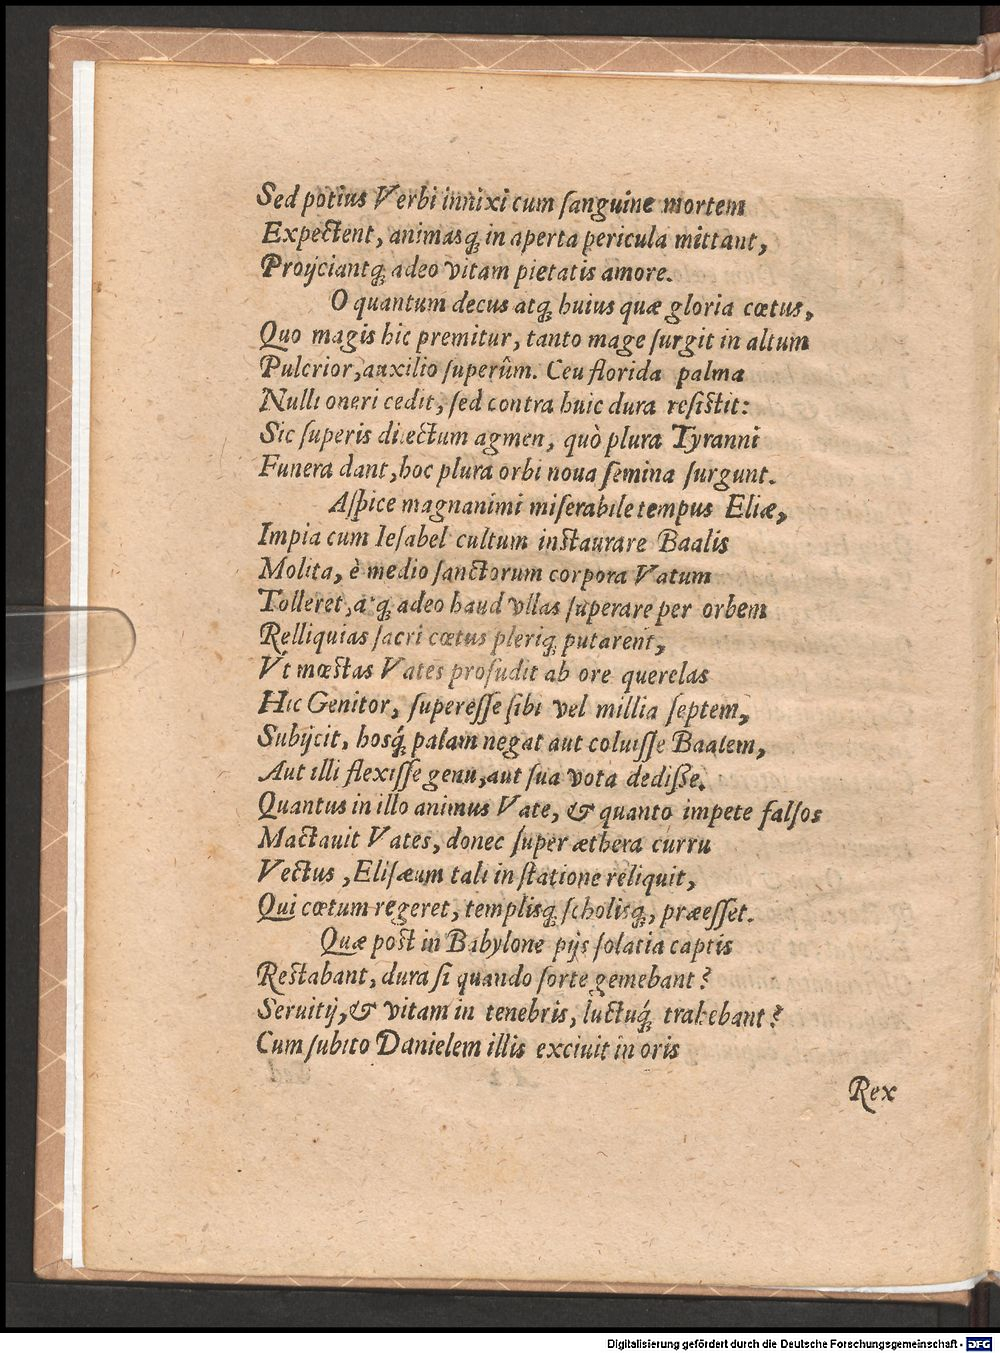 Sed potius Verbi innixi cum ſanguine mortem
Expectent, animasq́; in aperta pericula mittant,
Proijciantq́; adeo vitam pietatis amore.
O quantum decus atq́; huius quæ gloria cœtus,
Quo magis hic premitur, tanto mage ſurgit in altum
Pulcrior, auxilio ſuperûm. Ceu florida palma
Nulli oneri cedit, ſed contra huic dura reſiſtit:
Sic ſuperis dilectum agmen, quò plura Tyranni
Funera dant, hoc plura orbi noua ſemina ſurgunt.
Aſpice magnanimi miſerabile tempus Eliæ,
Impia cum Ieſabel cultum inſtaurare Baalis
Molita, è medio ſanctorum corpora Vatum
Tolleret, atq́; adeo haud vllas ſuperare per orbem
Relliquias ſacri cœtus pleriq́; putarent,
Vt mœſtas Vates profudit ab ore querelas
Hic Genitor, ſupereſſe ſibi vel millia ſeptem,
Subijcit, hosq́; palam negat aut coluiſſe Baalem,
Aut illi flexiſſe genu, aut ſua vota dediſſe.
Quantus in illo animus Vate, & quanto impete falſos
Mactauit Vates, donec ſuper æthera curru
Vectus, Eliſæum tali in ſtatione reliquit,
Qui cœtum regeret, templisq́; ſcholisq́;, præeſſet.
Quæ poſt in Babylone pijs ſolatia captis
Reſtabant, dura ſi quando ſorte gemebant?
Seruitij, & vitam in tenebris, luctuq́; trahebant?
Cum ſubito Danielem illis exciuit in oris
Rex
Digitalisierung gefördert durch die Deutsche Forschungsgemeinschaft - DFG